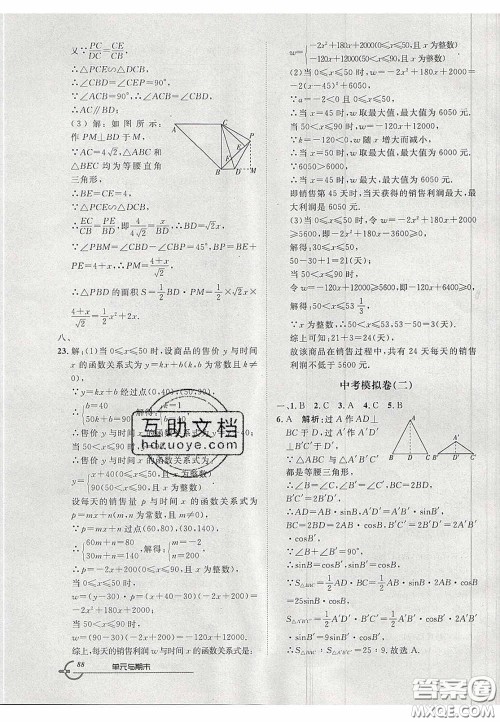 又∵PC/DC=CE/CB,
∴△PCE∽△DCB,
∴∠CBD=∠CEP=90°,
∵∠ACB=90°,∴∠ACB=∠CBD,
∴AC∥BD;
(3)解:如图所示,
作PM⊥BD于M,
∵AC=4√2,△ABC和
△BEC均为等腰直角
三角形,
∴BE=CE=4,
∵△PCE∽△DCB,
∴EC/CB=PE/BD,即4/4√2=x/BD,∴BD=√2x,
∵∠PBM=∠CBD-∠CBP=45°,
BP=BE+PE=4+x,∴PM=
(4+x)/√2,
∴△PBD的面积S=1/2BD·PM=1/2×√2x×
(4+x)/√2=1/2x²+2x.
八、
23.解:(1)当0≤x≤50时,设商品的售价y与时间
x的函数关系式为y=kx+b(k,b为常数且k
≠0),
∵y=kx+b经过点(0,40),(50,90),
∴{b=40
50k+b=90,解得:
∴售价y与时间x的函数
当50<x≤90时,y=90.
∴售价y与时间x的函数
{x+40(0≤x≤50,且x为整数)
90(50<x≤90,且x为整数)
设每天的销售量p与时间x的函数关系式为
p=mx+n(m,n为常数,且m≠0),
∵p=mx+n过点(60,80),(30,140),
∴{60m+n=80
30m+n=140,解得:{m=-2
n=200,
∴p=-2x+200(0≤x≤90,且x为整数),
当0≤x≤50时,
w=(y-30)·p=(x+40-30)(-2x+200)=
-2x²+180x+2000;
当50<x≤90时,
w=(90-30)(-2x+200)=-120x+12000.
综上所述,每天的销售利润w与时间x的函数关系式是:
88 单元与期末
w={-2x²+180x+2000(0≤x≤50,且x为整数)
-120x+12000(50<x≤90,且x为整数)
(2)当0≤x≤50时,w=-2x²+180x+2000=
-2(x-45)²+6050,
∵a=-2<0且0≤x≤50,
∴当x=45时,w取最大值,最大值为6050元.
当50<x≤90时,w=-120x+12000,
∵k=-120<0,w随x增大而减小,
∴当x=50时,w取最大值,最大值为6000元,
∵6050>6000,
∴当x=45时,w最大,最大值为6050元.
即销售第45天时,当天获得的销售利润最大,最
大利润是6050元.
(3)当0≤x≤50时,令w=-2x²+180x+2000
≥5600,即-2x²+180x-3600≥0,
解得:30≤x≤50,
50-30+1=21(天);
当50<x≤90时,
令w=-120x+12000≥5600,即-120x+6400≥0,
解得:50<x≤53 1/3,
∵x为整数,∴50<x≤53,53-50=3(天).
综上可知:21+3=24(天),
故该商品在销售过程中,共有24天每天的销售
利润不低于5600元.
中考模拟卷(二)
一、1.B 2.C 3.A 4.C 5.B
6.A 解析:过A作AD⊥
BC于D,过A′作A′D′⊥
B′C′于D′,
∵△ABC与△A′B′C′
都是等腰三角形,
∴∠B=∠C,∠B′=∠C′,BC=2BD,B′C′=2B′D′,
∴AD=AB·sinB,A′D′=A′B′·sinB′,BC=
2BD=2AB·cosB,B′C′=2B′D′=2A′B′·
cosB′,
∵∠B+∠B′=90°,
∴sinB=cosB′,sinB′=cosB,
∵S△ABC=1/2AD·BC=1/2AB·sinB·2AB·
cosB=25sinB·cosB,
S△A′B′C′=1/2A′D′·B′C′=1/2A′B′·sinB′·2A′B′·
cosB′=9sinB′·cosB′,
∴S△ABC:S△A′B′C′=25:9.故选A.
互助文档
hdzuoye.com